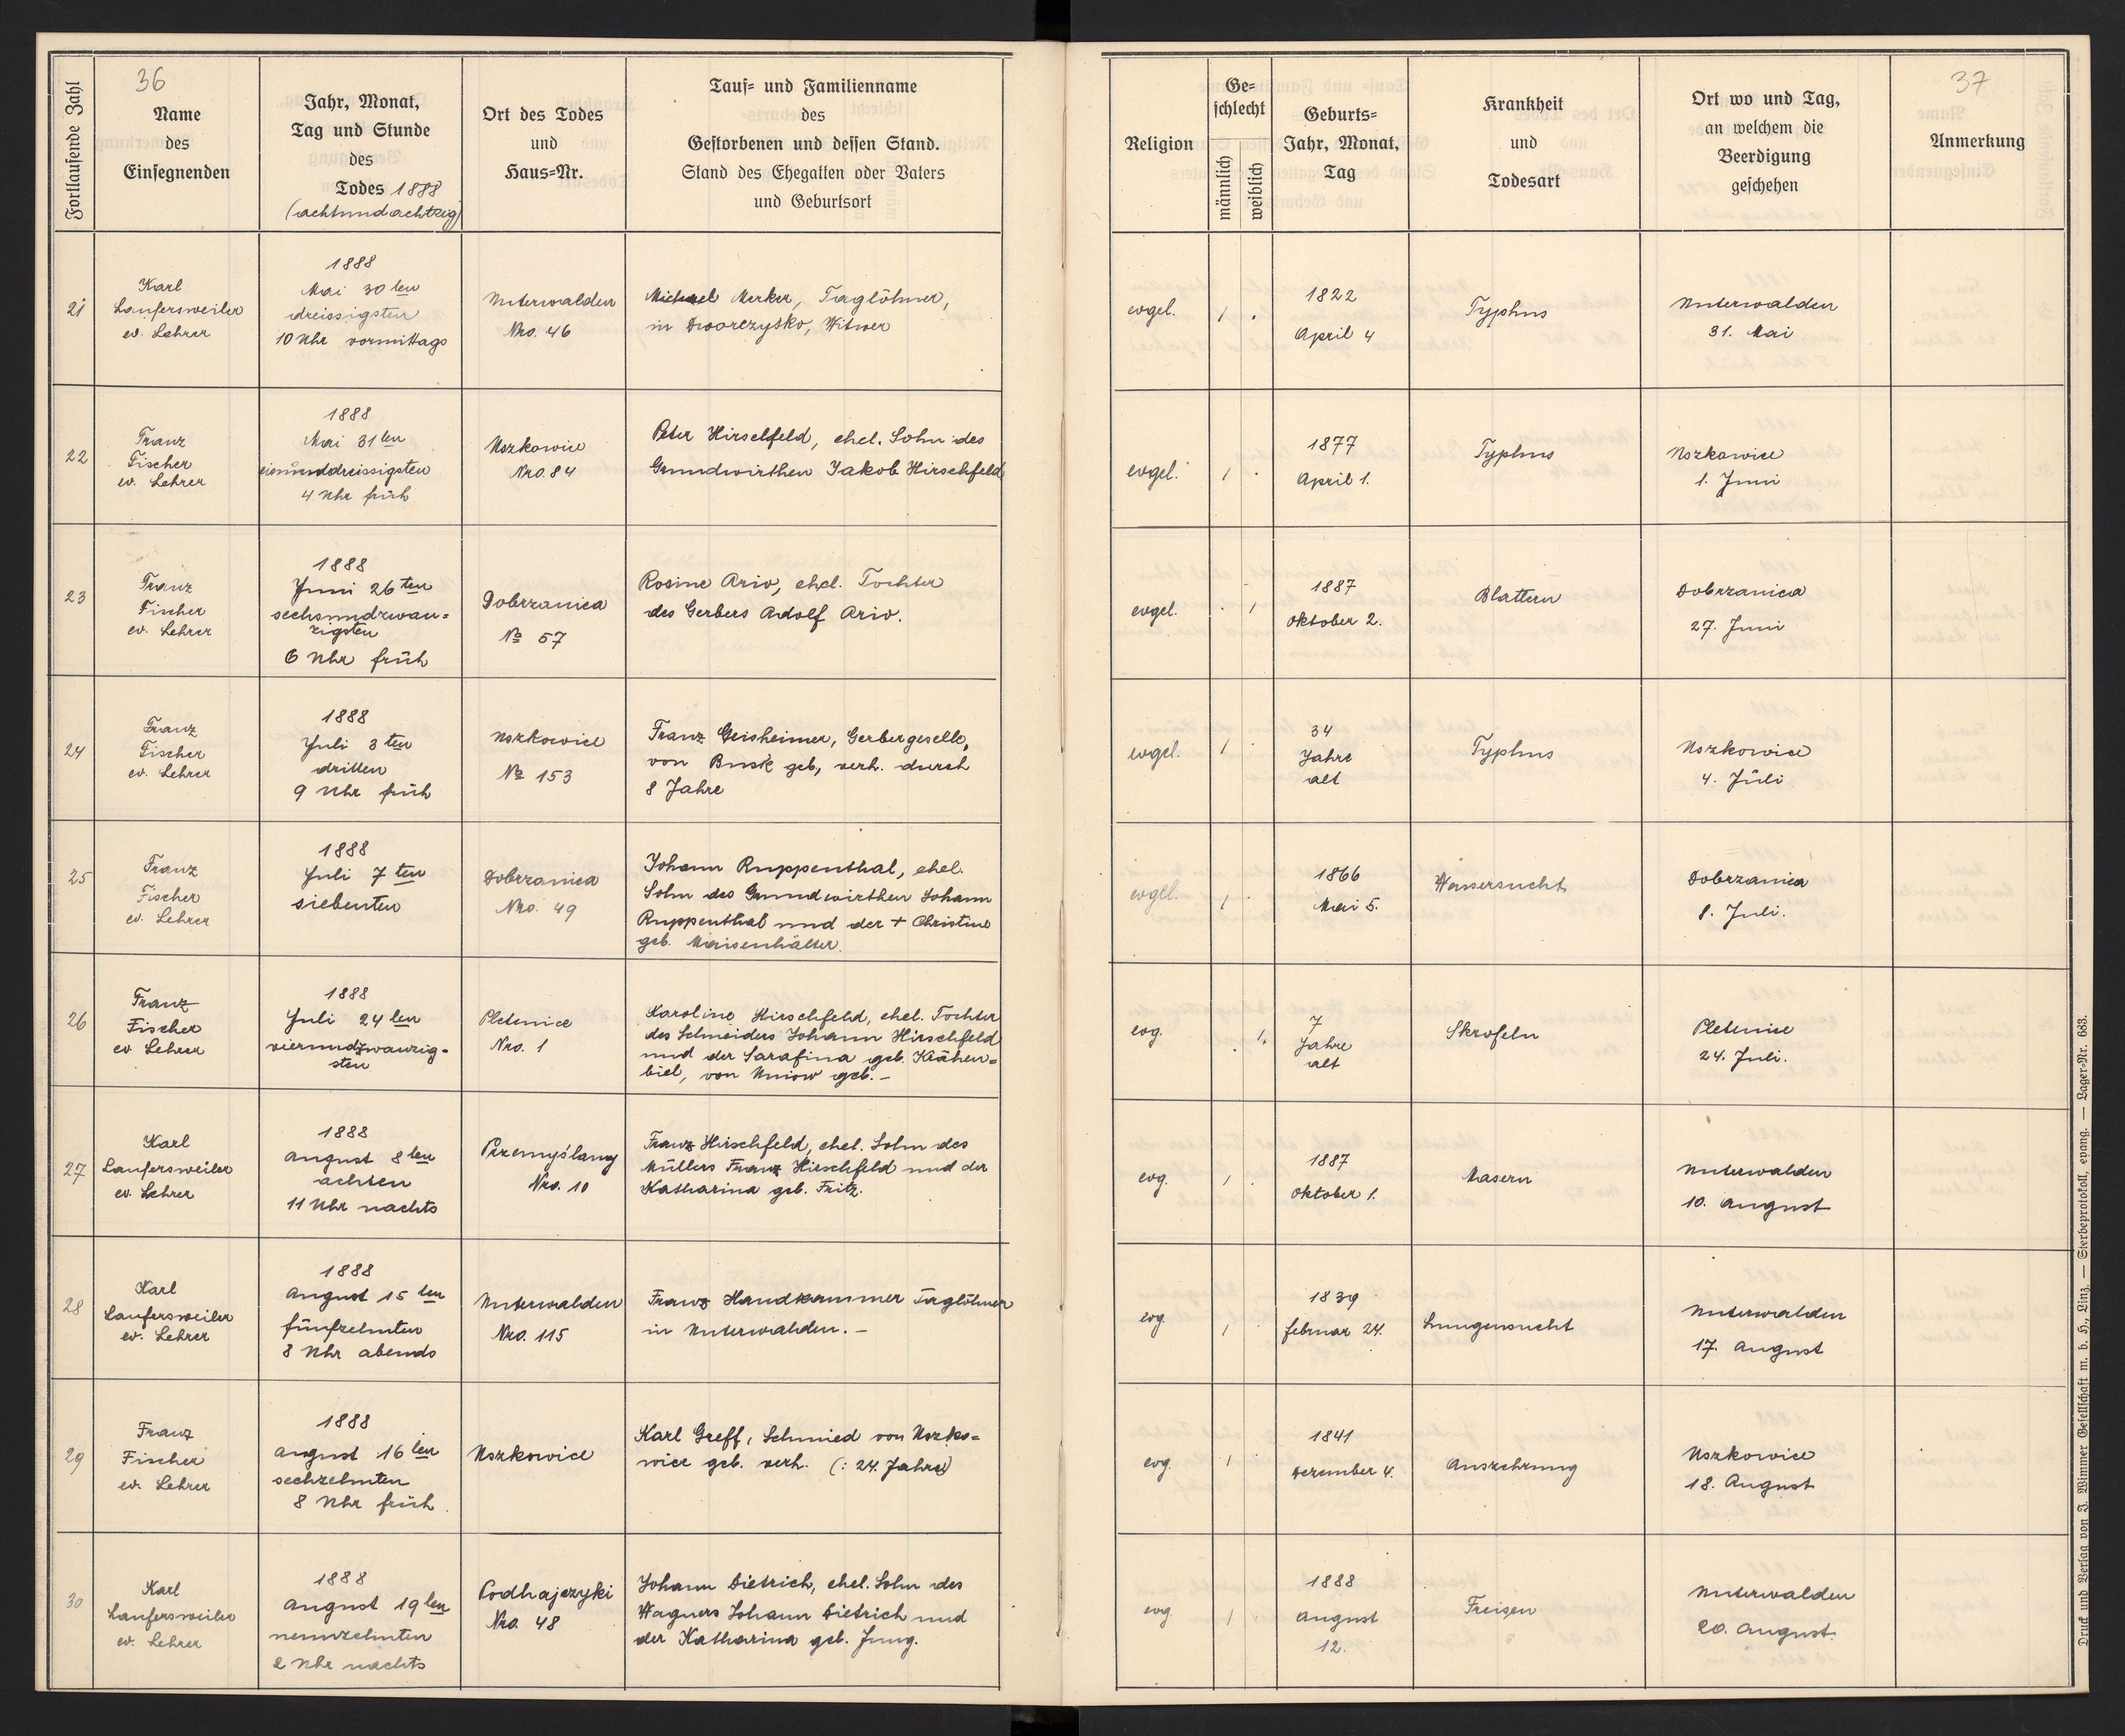 36
Fortlaufende Zahl
Name
des
Einsegnenden
Jahr, Monat,
Tag und Stunde
des
Todes 1888
(achtundachtzig)
Ort des Todes
und
Haus-Nr.
Tauf- und Familienname
des
Gestorbenen und dessen Stand.
Stand des Ehegatten oder Vaters
und Geburtsort
Religion
Ge-
schlecht
männlich
weiblich
Geburts-
Jahr, Monat,
Tag
Krankheit
und
Todesart
Ort wo und Tag,
an welchem die
Beerdigung
geschehen
37
Anmerkung
21
Karl
Laufersweiler
ev. Lehrer
1888
Mai 30ten
dreissigsten
10 Uhr vormittags
Unterwalden
Nro. 46
Michael Merker, Taglöhner,
in Dworczysko, Witwer
evgel.
1 .
1822
April 4
Typhus
Unterwalden
31. Mai
22
Franz
Fischer
ev. Lehrer
1888
Mai 31ten
einunddreissigsten
4 Uhr früh
Uszkowice
Nro. 84
Peter Hirschfeld, ehel. Sohn des
Grundwirthen Jakob Hirschfeld
evgel.
1 .
1877
April 1.
Typhus
Uszkowice
1. Juni
23
Franz
Fischer
ev. Lehrer
1888
Juni 26ten
sechsundzwan=
zigsten
6 Uhr früh
Dobrzanica
No 57
Rosine Ariv, ehel. Tochter
des Gerbers Adolf Ariv.
evgel.
. 1
1887
Oktober 2.
Blattern
Dobrzanica
27. Juni
24
Franz
Fischer
ev. Lehrer
1888
Juli 3ten
dritten
9 Uhr früh
Uszkowice
No 153
Franz Geisheimer, Gerbergeselle,
von Busk geb, verh. durch
8 Jahre
evgel.
1 .
34
Jahre
alt
Typhus
Uszkowice
4. Juli
25
Franz
Fischer
ev. Lehrer
1888
Juli 7ten
siebenten
Dobrzanica
Nro. 49
Johann Ruppenthal, ehel.
Sohn des Grundwirthen Johann
Ruppenthal und der + Christine
geb. Maisenhälter.
evgel.
1 .
1866
Mai 5.
Wassersucht
Dobrzanica
8. Juli.
26
Franz
Fischer
ev Lehrer
1888
Juli 24ten
vierundzwanzig-
sten
Pletenice
Nro. 1
Karoline Hirschfeld, ehel. Tochter
des Schneiders Johann Hirschfeld
und der Sarafina geb. Krähen=
biel, von Uniow geb. –
evg.
. 1.
7
Jahre
alt
Skrofeln
Pletenice
24. Juli.
27
Karl
Laufersweiler
ev. Lehrer
1888
August 8ten
achten
11 Uhr nachts
Przemyślany
Nro. 10
Franz Hirschfeld, ehel. Sohn des
Müllers Franz Hirschfeld und der
Katharina geb. Fritz.
evg.
1 .
1887
Oktober 1.
Masern
Unterwalden
10. August
28
Karl
Laufersweiler
ev. Lehrer
1888
August 15ten
fünfzehnten
8 Uhr abends
Unterwalden
Nro. 115
Franz Handkammer Taglöhner
in Unterwalden. –
evg.
1 .
1839
februar 24.
Lungensucht
Unterwalden
17. August
29
Franz
Fischer
ev. Lehrer
1888
August 16ten
sechzehnten
8 Uhr früh
Uszkowice
Karl Greff, Schmied von Uszko=
wice geb. verh. (: 24. Jahre)
evg.
1 .
1841
Dezember 4.
Auszehrung
Uszkowice
18. August
30
Karl
Laufersweiler
ev. Lehrer
1888
August 19ten
neunzehnten
2 Uhr nachts
Podhajczyki
Nro. 48
Johann Dietrich, ehel. Sohn des
Wagners Johann Dietrich und
der Katharina geb. Jung.
evg.
1 .
1888
August
12.
Freisen
Unterwalden
20. August.
Druck und Verlag von J. Wimmer Gesellschaft m. b. H., Linz. — Sterbeprotokoll, evang. — Lager-Nr. 683.